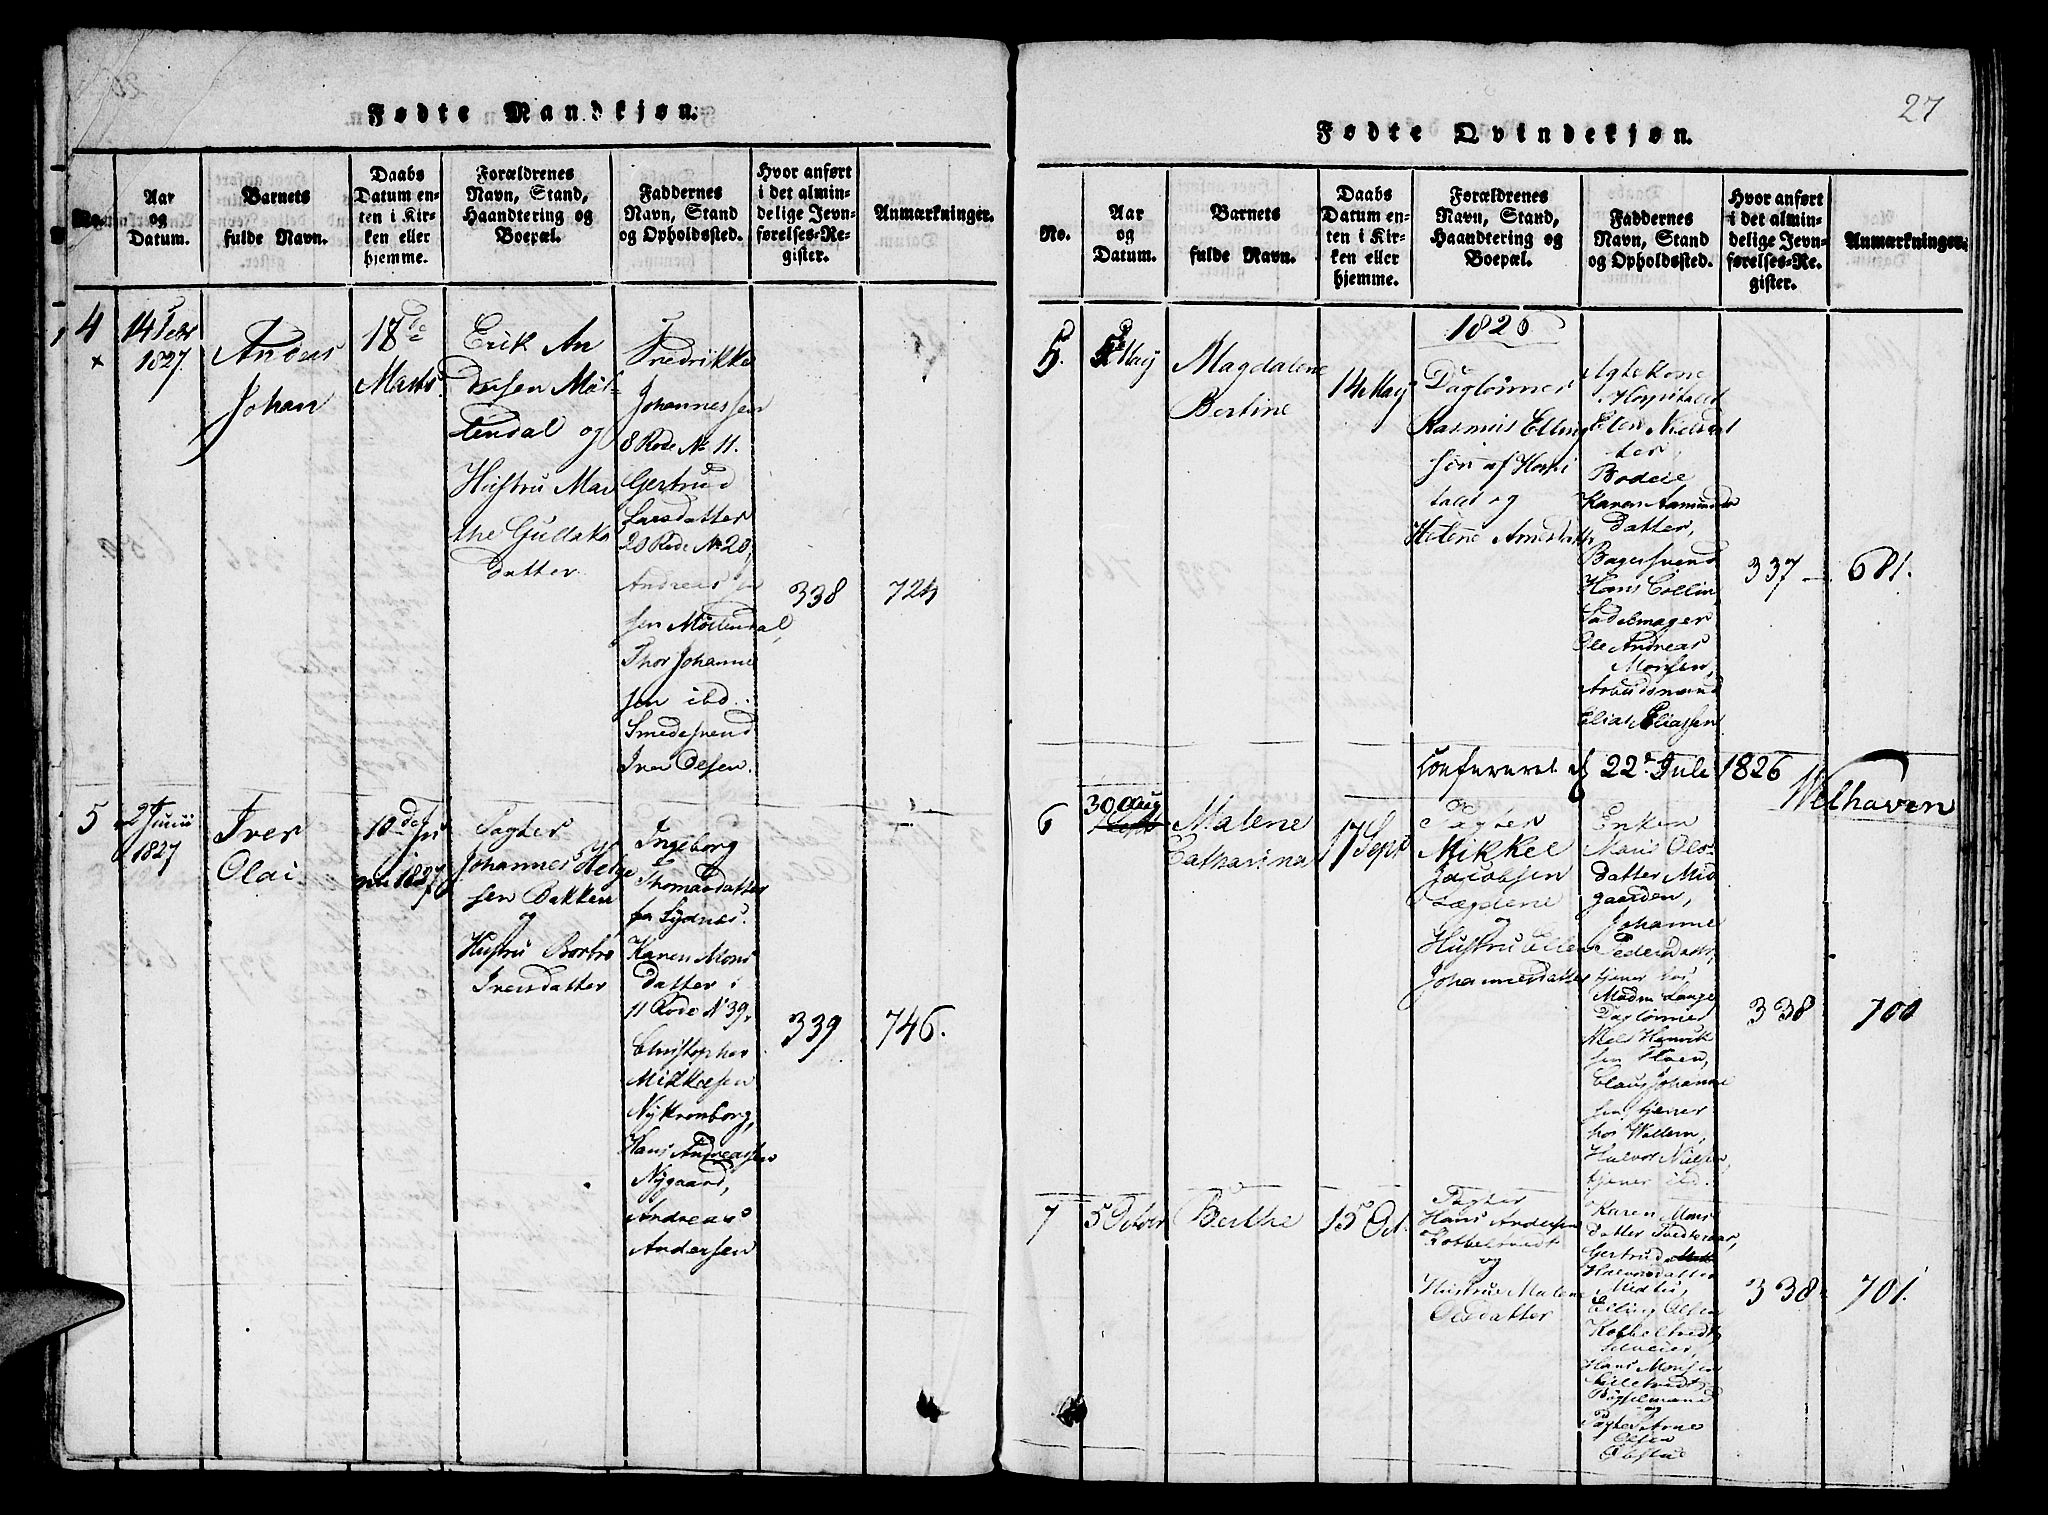 Fødte Mandkjøn.
No.
Aar
og
Datum.
Barnets
fulde Navn.
Daabs
Datum en-
ten i Kir-
ken eller
hjemme.
Forældrenes
Navn, Stand,
Haandtering og
Boepæl.
Faddernes
Navn, Stand
og Opholdssted.
Hvor anført
i det almin-
delige Jevn-
førelses-Re-
gister.
Anmærkninger.
4
14 Febr
1827
Anders
Johan
18de
Marts.
Erik An
dersen Möl
lendal og
Hustru Mar
the Gullaks
datter
Fredrikke
Johannessen
8 Rode No 11.
Gertrud
Larsdatter
20 Rode No 20,
Andreas
sen Möllendal,
Thor Johanne
sen ibd.
Smedesvend
Iver Olsen.
338
724
5
2 Junii
1827
Iver
Olai
10de Ju
nii 1827
Pagter
Johannes Helge
sen Bakken
og
Hustru Barbro
Iversdatter
Ingeborg
Thomasdatter
fra Sydnes.
Karen Mons
datter i
11 Rode No 39,
Christopher
Mikkelsen
Nykronborg,
Hans Andreassen
Nygaard,
Andreas
Andersen
339
746.
27
Fødte Qvindekjøn.
No.
Aar
og
Datum.
Barnets
fulde Navn.
Daabs
Datum en-
ten i Kir-
ken eller
hjemme.
Forældrenes
Navn, Stand,
Haandtering og
Boepæl.
Faddernes
Navn, Stand
og Opholdssted.
Hvor anført
i det almin-
delige Jevn-
førelses-Re-
gister.
Anmærkninger.
1826
5.
May
Magdalene
Bertine
14 May
Daglönner
Rasmus Elling
sen af Hospi
talet og
Helene Arnesdatter
Agtekone
Hospitalet
Elen Nielsdat
ter,
Bodeie
Karen Aamunds
datter,
Bagersvend
Hans Collin,
Sadelmager
Ole Andreas
Monsen,
Arbeidsmand
Elias Eliassen
337
681.
Confereret d 22de Juli 1826
Welhaven
6
30 Aug
Malene
Catharina
17 Sept
Pagter
Mikkel
Jacobsen
Lægdene
og
Hustru Ellen
Johannesdatter
Enken
Maris Ols
datter Mid
gaarden,
Johanne
Pedersdatt,
tjener hos
Madm Lange
Daglönner
Mels Henrik
sen Hoen,
Claus Johanne
sen, tjener
hos Wallem,
Halvor Nielsen,
tjener ibd.
338
700
7
5 October
Berthe
15 Oct.
Pagter
Hans Andersen
Kobbeltvedt
og
Hustrue Malene
Olsdatter
Karen Mons
datter Tvedteraas,
Gertrud
Halvorsdatter
Midtun,
Elling Olsen
Kobbeltvedt
Selveier,
Hans Monsen
Lilletvedt
Bögselmand
og
Pagter Arne
Olsen
338
701.